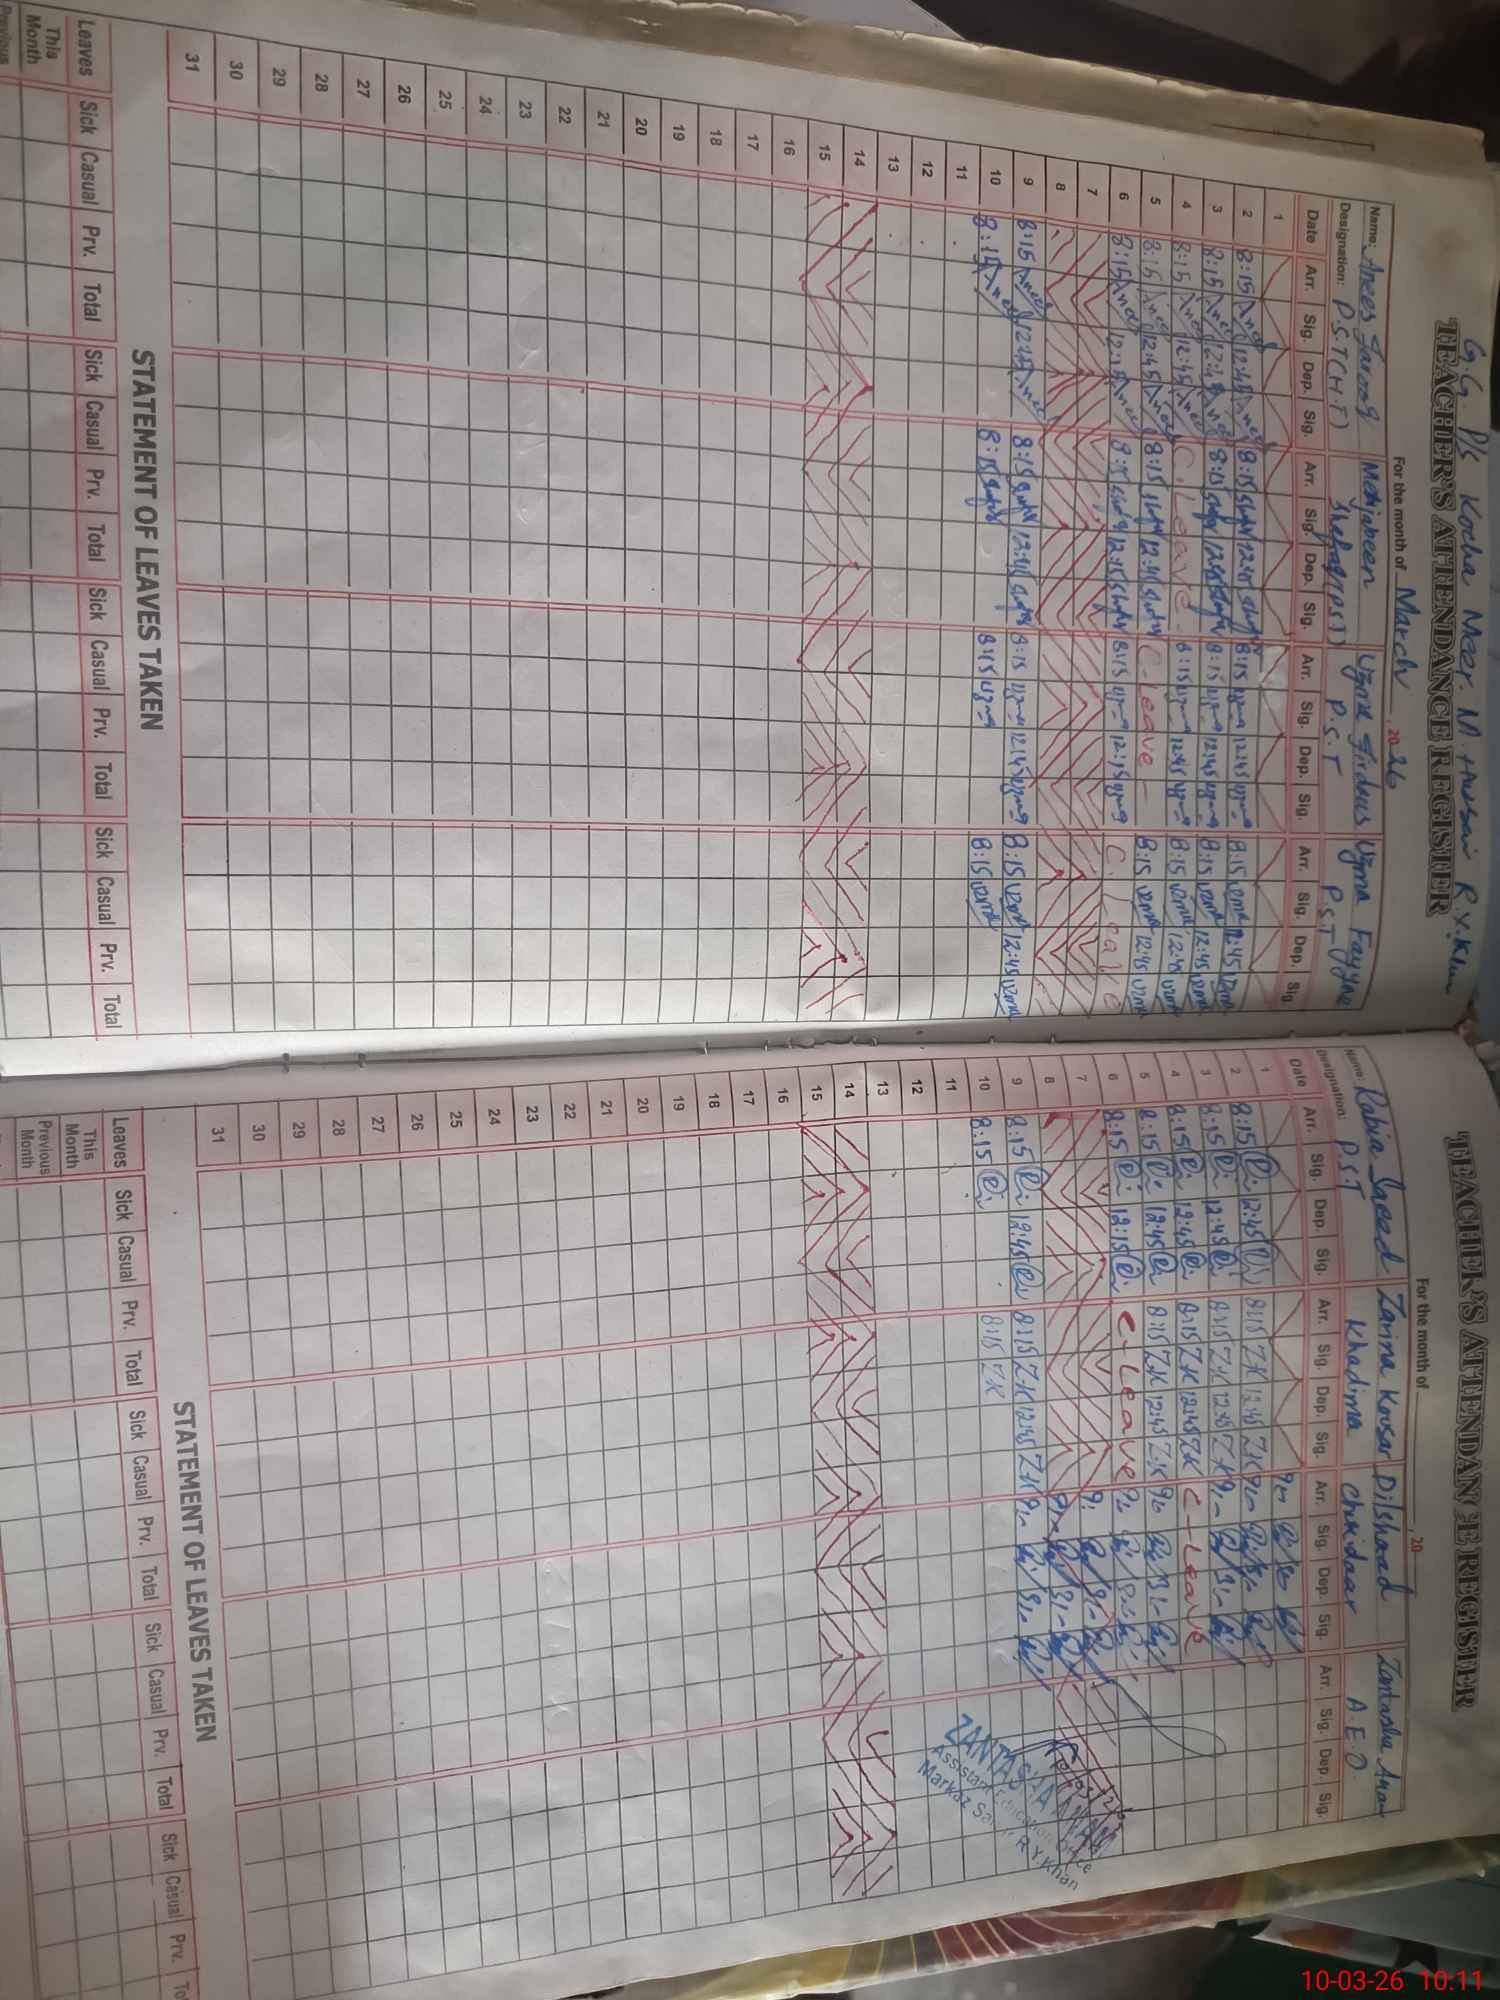 G.G. P/s Kocha Meer. M. Hussain R.Y.Khan
TEACHER'S ATTENDANCE REGISTER
For the month of March, 2026
Name: Anees Farooq Mehjabeen Uzma Firdous Uzma Fayyaz
Designation: P.S.T (H.T) Shafaq (PST) P.S.T P.S.T
Date Arr. Sig. Dep. Sig. Arr. Sig. Dep. Sig. Arr. Sig. Dep. Sig. Arr. Sig. Dep. Sig.
1
2 8:15 Anees 12:45 Anees 8:15 12:45 8:15 uzma 12:45 uzma 8:15 uzma 12:45 uzma
3 8:15 Anees 12:45 Anees 8:15 12:45 8:15 uzma 12:45 uzma 8:15 uzma 12:45 uzma
4 8:15 Anees 12:45 Anees C.Leave - 8:15 uzma 12:45 uzma 8:15 uzma 12:45 uzma
5 8:15 Anees 12:45 Anees 8:15 12:45 C.Leave - 8:15 uzma 12:45 uzma
6 8:15 Anees 12:15 Anees 8:15 12:15 8:15 uzma 12:15 uzma C.Leave
7
8
9 8:15 Anees 12:45 Anees 8:15 12:45 8:15 uzma 12:45 uzma 8:15 uzma 12:45 uzma
10 8:15 Anees 8:15 8:15 uzma 8:15 uzma
11
12
13
14
15
16
17
18
19
20
21
22
23
24
25
26
27
28
29
30
31
STATEMENT OF LEAVES TAKEN
Leaves Sick Casual Prv. Total Sick Casual Prv. Total Sick Casual Prv. Total Sick Casual Prv. Total
This Month
Previous
TEACHER'S ATTENDANCE REGISTER
For the month of , 20
Name: Rabia Saeed Zarina Kousar Dilshaad Zantasha Anam
Designation: P.S.T Khadima Chokidaar A.E.O.
Date Arr. Sig. Dep. Sig. Arr. Sig. Dep. Sig. Arr. Sig. Dep. Sig. Arr. Sig. Dep. Sig.
1
2 8:15 12:45 8:15 Z.K 12:45 Z.K
3 8:15 12:45 8:15 Z.K 12:45 Z.K
4 8:15 12:45 8:15 Z.K 12:45 Z.K C-Leave
5 8:15 12:45 8:15 Z.K 12:45 Z.K
6 8:15 12:15 C-Leave
7
8
9 8:15 12:45 8:15 Z.K 12:45 Z.K
10 8:15 8:15 Z.K
11
12
13
14
15
16
17
18
19
20
21
22
23
24
25
26
27
28
29
30
31
ZANTASHA ANAM
Assistant Education Office
Markaz R.Y.Khan
STATEMENT OF LEAVES TAKEN
Leaves Sick Casual Prv. Total Sick Casual Prv. Total Sick Casual Prv. Total Sick Casual Prv.
This Month
Previous Month
10-03-26 10:11